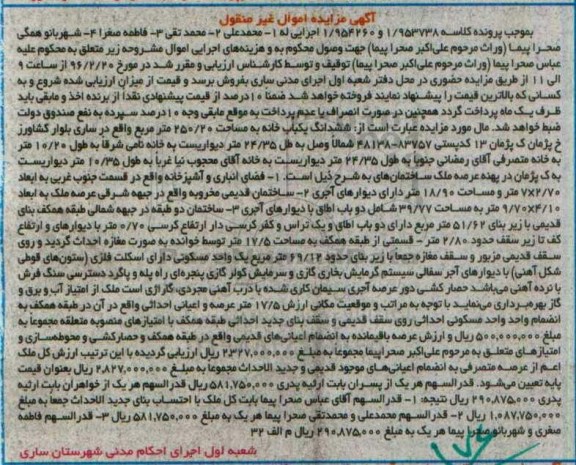 آگهی مزایده اموال غیر منقول
بموجب پرونده کلاسه ۱/۹۵۳۷۳۸ و ۱/۹۵۴۲۶۰ اجرایی له ۱- محمدعلی ۲- محمد تقی ۳- فاطمه صغرا ۴- شهربانو همگی
صحرا پیما (وراث مرحوم علی‌اکبر صحرا پیما) جهت وصول محکوم به و هزینه‌های اجرایی اموال مشروحه زیر متعلق به محکوم علیه
عباس صحرا پیما (وراث مرحوم علی‌اکبر صحرا پیما) توقیف و توسط کارشناس ارزیابی و مقرر شد در مورخ ۹۶/۲/۲۰ از ساعت ۹
الی ۱۱ از طریق مزایده حضوری در محل دفتر شعبه اول اجرای مدنی ساری بفروش برسد و قیمت از میزان ارزیابی شده شروع و به
کسانی که بالاترین قیمت را پیشنهاد نمایند فروخته خواهد شد ضمنا ۱۰ درصد از قیمت پیشنهادی نقدا از برنده اخذ و مابقی باید
ظرف یک ماه پرداخت گردد همچنین در صورت انصراف یا عدم پرداخت به موقع مابقی وجه ۱۰ درصد سپرده به نفع صندوق دولت
ضبط خواهد شد. مال مورد مزایده عبارت است از: ششدانگ یکباب خانه به مساحت ۲۵۰/۲۰ متر مربع واقع در ساری بلوار کشاورز
خ پژمان ک پژمان ۱۳ کدپستی ۸۳۷۵۷-۴۸۱۳۸ شمالاً وصل به طل ۲۴/۳۵ متر دیواریست به خانه نامی شرقا به طول ۱۰/۲۰ متر
به خانه متصرفی آقای رمضانی جنوبا به طول ۲۴/۳۵ متر دیواریست به خانه آقای محجوب نیا غربا به طول ۱۰/۳۵ متر دیواریست
به ک پژمان در پهنه عرصه ملک ساختمان‌های به شرح ذیل است. ۱- فضای انباری و آشپزخانه واقع در قسمت جنوب غربی به ابعاد
۷×۲/۷۰ متر و مساحت ۱۸/۹۰ متر دارای دیوارهای آجری ۲- ساختمان قدیمی مخروبه واقع در جبهه شرقی عرصه ملک به ابعاد
۹/۷۰×۴/۱۰ متر به مساحت ۳۹/۷۷ شامل دو باب اطاق با دیوارهای آجری ۳- ساختمان دو طبقه در جبهه شمالی طبقه همکف بنای
قدیمی با زیر بنای ۵۱/۶۲ متر مربع دارای دو باب اطاق و یک تراس و کفر کرسی دار ارتفاع کرسی ۰/۷۰ متر با دیوارهای و ارتفاع
کف تا زیر سقف حدود ۲/۸۰ متر - قسمتی از طبقه همکف به مساحت ۱۷/۵ متر توسط خوانده به صورت مغازه احداث گردید و روی
سقف قدیمی مزبور و سقف مغازه جمعا با زیر بنای حدود ۶۹/۱۲ متر مربع یک واحد مسکونی دارای اسکلت فلزی (ستون‌های قوطی
شکل آهنی) با دیوارهای آجر سفالی سیستم گرمایش بخاری گازی و سرمایش کولر گازی پنجره‌ای راه پله و پاگرد دسترسی سنگ فرش
با نرده آهنی می‌باشد حصار کشی دور عرصه آجری سیمان کاری شده با درب آهنی مجردی، گاراژی است ملک از امتیاز آب و برق و
گاز بهره‌برداری می‌نمایند با توجه به مراتب و موقعیت مکانی ارزش ۱۷/۵ متر عرصه و اعیانی احداثی واقع در آن در طبقه همکف به
انضمام واحد واحد مسکونی احداثی روی سقف قدیمی و سقف بنای جدید احداثی طبقه همکف با امتیازهای منصوبه متعلقه مجموعا به
مبلغ ۵۰۰,۰۰۰,۰۰۰ ریال و ارزش عرصه باقیمانده به انضمام اعیانی‌های قدیمی واقع در طبقه همکف و حصارکشی و محوطه‌سازی و
امتیازهای متعلق به مرحوم علی‌اکبر صحراپیما مجموعا به مبلغ ۲,۳۲۷,۰۰۰,۰۰۰ ریال ارزیابی گردیده با این ترتیب ارزش کل ملک
اعم از عرصه متصرفی به انضمام اعیانی‌های موجود قدیمی و جدید الاحداث مجموعا به مبلغ ۲,۸۲۷,۰۰۰,۰۰۰ ریال بعنوان قیمت
پایه تعیین می‌شود. قدرالسهم هر یک از پسران بابت ارثیه پدری ۵۸۱,۷۵۰,۰۰۰ ریال قدرالسهم هر یک از خواهران بابت ارثیه
پدری ۲۹۰,۸۷۵,۰۰۰ ریال نتیجه: ۱- قدرالسهم آقای عباس صحرا پیما بابت کل ملک با احتساب بنای جدید الاحداث جمعا به مبلغ
۱,۰۸۷,۷۵۰,۰۰۰ ریال ۲- قدرالسهم محمدعلی و محمدتقی صحرا پیما هر یک به مبلغ ۵۸۱,۷۵۰,۰۰۰ ریال ۳- قدرالسهم فاطمه
صغری و شهربانو صحرا پیما هر یک به مبلغ ۲۹۰,۸۷۵,۰۰۰ ریال م الف ۳۲
شعبه اول اجرای احکام مدنی شهرستان ساری